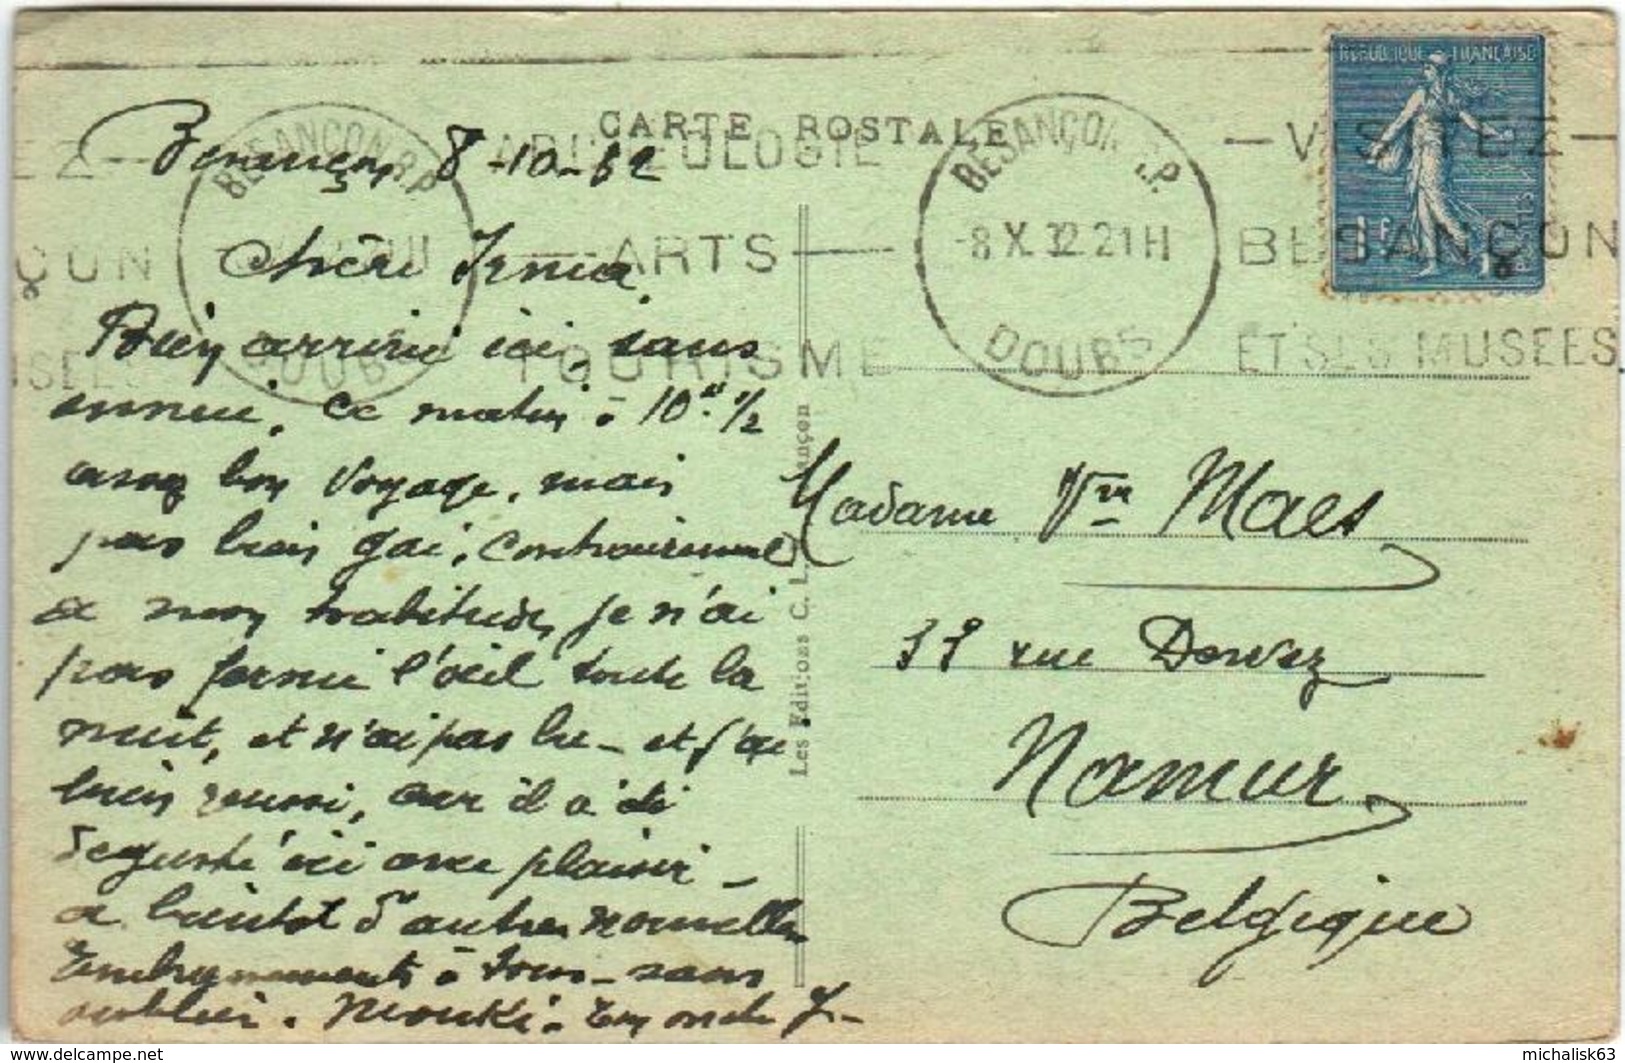 CARTE POSTALE
BESANÇON R.P.
DOUBS
ARCHEOLOGIE
ARTS
TOURISME
BESANÇON R.P.
-8 X 32 21H
DOUBS
VISITEZ
BESANÇON
ET SES MUSEES
REPUBLIQUE FRANÇAISE
POSTES
1F
Besançon 8-10-32
Chère Irma
Bien arrivé ici, sans
ennui, ce matin à 10 h 1/2
assez bon voyage, mais
pas bien gai, contrairement
à mon habitude, je n'ai
pas fermé l'œil toute la
nuit, et n'ai pas lu - et j'ai
bien réussi, car il a été
dégusté ici avec plaisir -
à bientôt d'autres nouvelles
Embrassements à tous - sans
oublier
Les Editions C. L. Besançon
Madame Vve Maes
rue Dewez
Namur
Belgique
www.delcampe.net
michalisk63